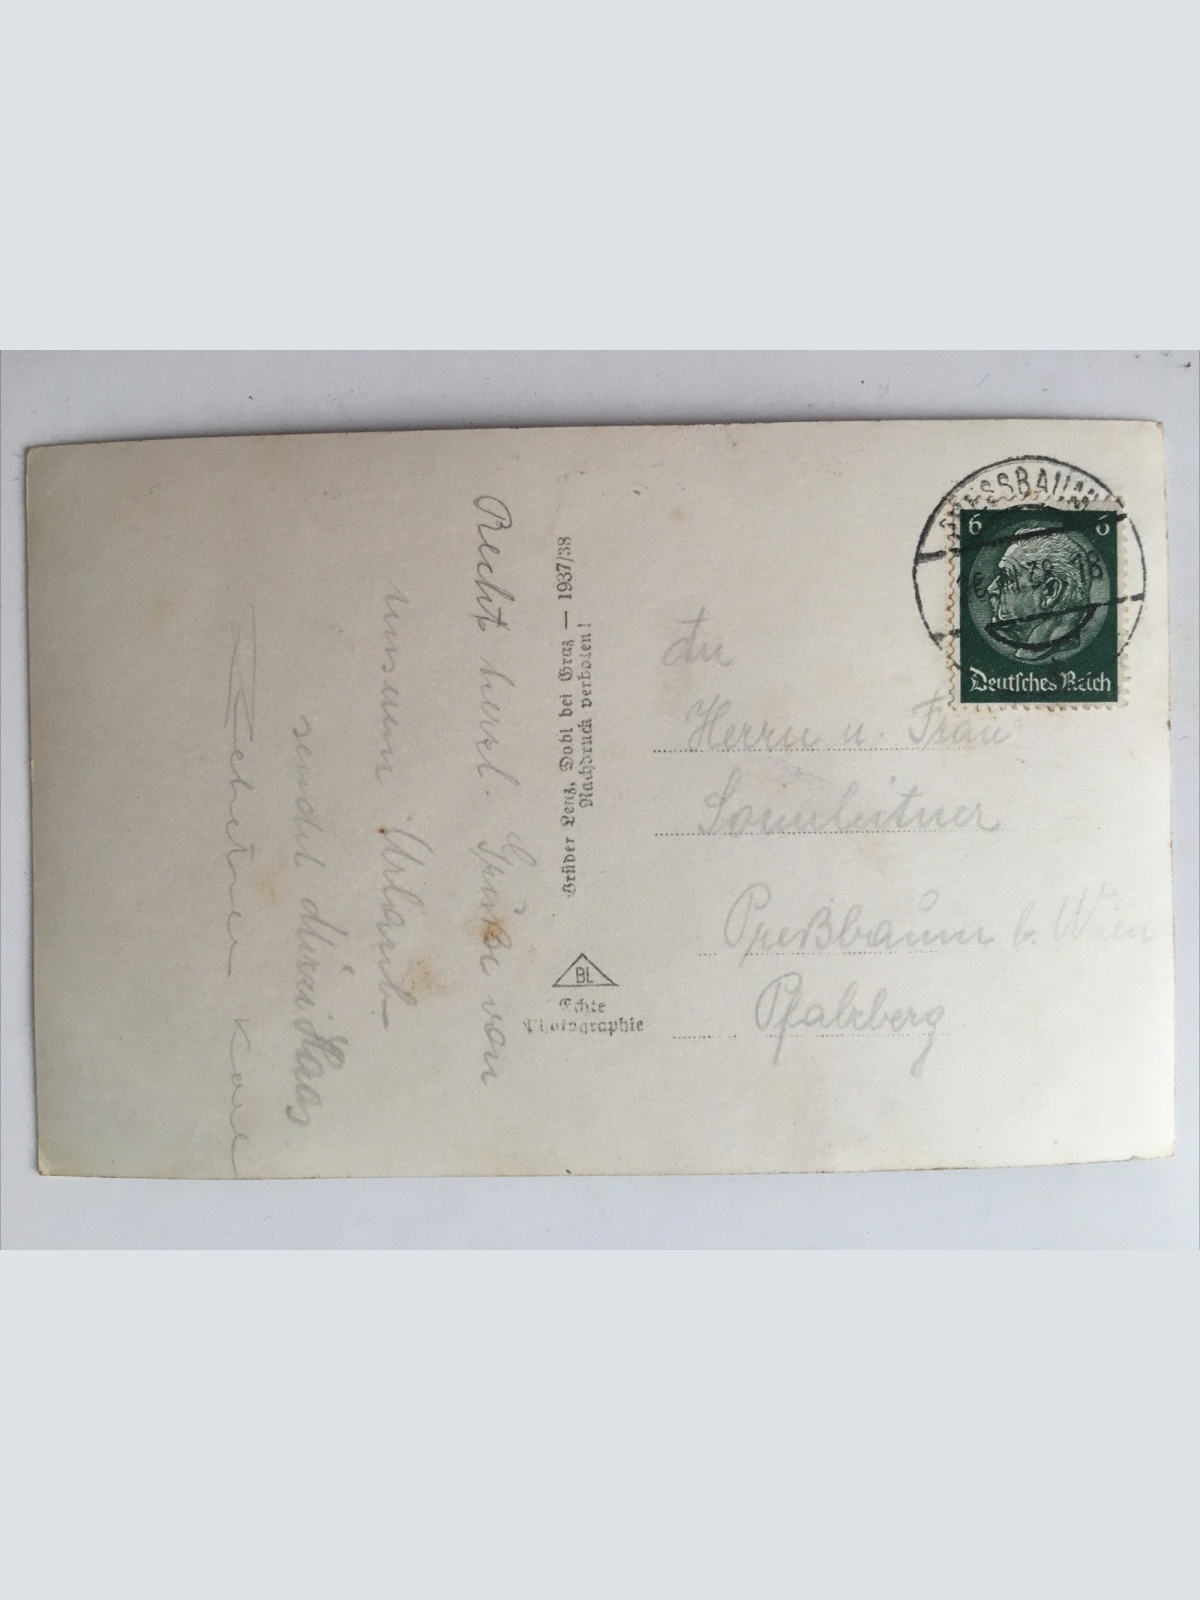 Recht herzl. Grüße von
unserem Urlaub
sendet Mizzi Haas.
Karl
Brüder Lenz, Dobl bei Graz — 1937/38
Nachdruck verboten!
BL
Echte
Photographie
PRESSBAUM
6 6
Deutsches Reich
An
Herrn u. Frau
Sonnleitner
Preßbaum b. Wien
Pfalzberg